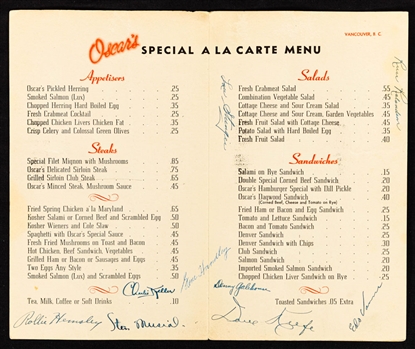 VANCOUVER, B. C.
Oscar's SPECIAL A LA CARTE MENU
Appetisers
Oscar's Pickled Herring 25
Smoked Salmon (Lox) 25
Chopped Herring Hard Boiled Egg 35
Fresh Crabmeat Cocktail 25
Chopped Chicken Livers Chicken Fat 35
Crisp Celery and Colossal Green Olives 25
Steaks
Special Filet Mignon with Mushrooms .85
Oscar's Delicated Sirloin Steak 75
Grilled Sirloin Club Steak 65
Oscar's Minced Steak, Mushroom Sauce .45
Fried Spring Chicken a'la Maryland 65
Kosher Salami or Corned Beef and Scrambled Egg .50
Kosher Wieners and Cole Slaw 50
Spaghetti with Oscar's Special Sauce 45
Fresh Fried Mushrooms on Toast and Bacon 45
Hot Chicken, Beef Sandwich, Vegetables 45
Grilled Ham or Bacon or Sausages and Eggs 45
Two Eggs Any Style 35
Smoked Salmon (Lox) and Scrambled Eggs 50
Tea, Milk, Coffee or Soft Drinks .10
Rollie Hemsley
Stan Musial
Salads
Fresh Crabmeat Salad .55
Combination Vegetable Salad 45
Cottage Cheese and Sour Cream Salad 35
Cottage Cheese and Sour Cream, Garden Vegetables 45
Fresh Fruit Salad with Cottage Cheese 45
Potato Salad with Hard Boiled Egg 35
Fresh Fruit Salad .40
Sandwiches
Salami on Rye Sandwich .15
Double Special Corned Beef Sandwich 20
Oscar's Hamburger Special with Dill Pickle 20
Oscar's Dagwood Sandwich .40
(Corned Beef, Cheese and Tomato on Bun)
Fried Ham or Bacon and Egg Sandwich 25
Tomato and Lettuce Sandwich 15
Bacon and Tomato Sandwich 25
Denver Sandwich 25
Denver Sandwich with Chips 30
Club Sandwich 45
Salmon Sandwich 20
Imported Smoked Salmon Sandwich 20
Chopped Chicken Liver Sandwich on Rye .25
Toasted Sandwiches .05 Extra